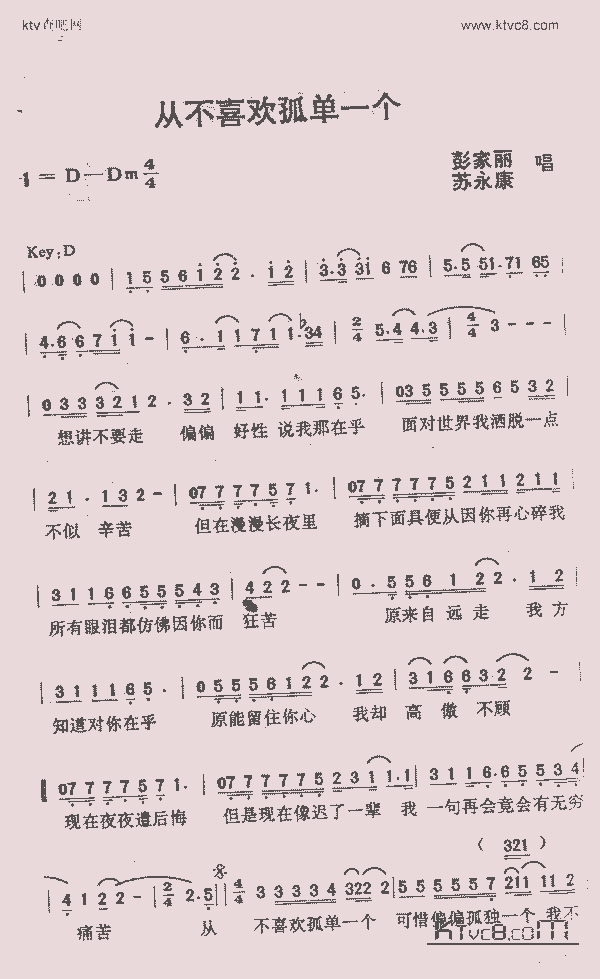 ktv
www.ktvc8.com
从不喜欢孤单一个
1 = D—Dm 4/4
彭家丽 唱
苏永康
Key:D
0 0 0 0 | 1 5 5 6 1 2 2 . 1 2 | 3 . 3 3 1 6 7 6 | 5 . 5 5 1 . 7 1 6 5 |
| 4 . 6 6 7 1 1 - | 6 . 1 1 7 1 1 . ♭3 4 | 2/4 5 . 4 4 . 3 | 4/4 3 - - - |
| 0 3 3 3 3 2 1 2 . 3 2 | 1 1 . 1 1 1 6 5 . | 0 3 5 5 5 5 6 5 3 2 |
想讲不要走 偏偏 好性 说我那在乎 面对世界我洒脱一点
| 2 1 . 1 3 2 - | 0 7 7 7 7 5 7 1 . | 0 7 7 7 7 7 5 2 1 1 2 1 1 |
不似 辛苦 但在漫漫长夜里 摘下面具便从因你再心碎我
| 3 1 1 6 6 5 5 5 4 3 | 4 2 2 - - | 0 . 5 5 6 1 2 2 . 1 2 |
所有眼泪都仿佛因你而 狂苦 原来自远走 我方
| 3 1 1 1 6 5 . | 0 5 5 5 6 1 2 2 . 1 2 | 3 1 6 6 3 2 2 - |
知道对你在乎 原能留住你心 我却 高 傲 不顾
0 7 7 7 7 5 7 1 . | 0 7 7 7 7 7 5 2 3 1 1 . 1 | 3 1 1 6 . 6 5 5 5 3 4
现在夜夜遗后悔 但是现在像迟了一辈 我 一句再会竟会有无穷
( 3 2 1 )
| 4 1 2 2 - | 2/4 2 . 5 || 4/4 3 3 3 3 4 3 2 2 2 | 5 5 5 5 5 7 2 1 1 1 1 2
痛苦 从 不喜欢孤单一个 可惜偏偏孤独一个 我不
ktvc8.com